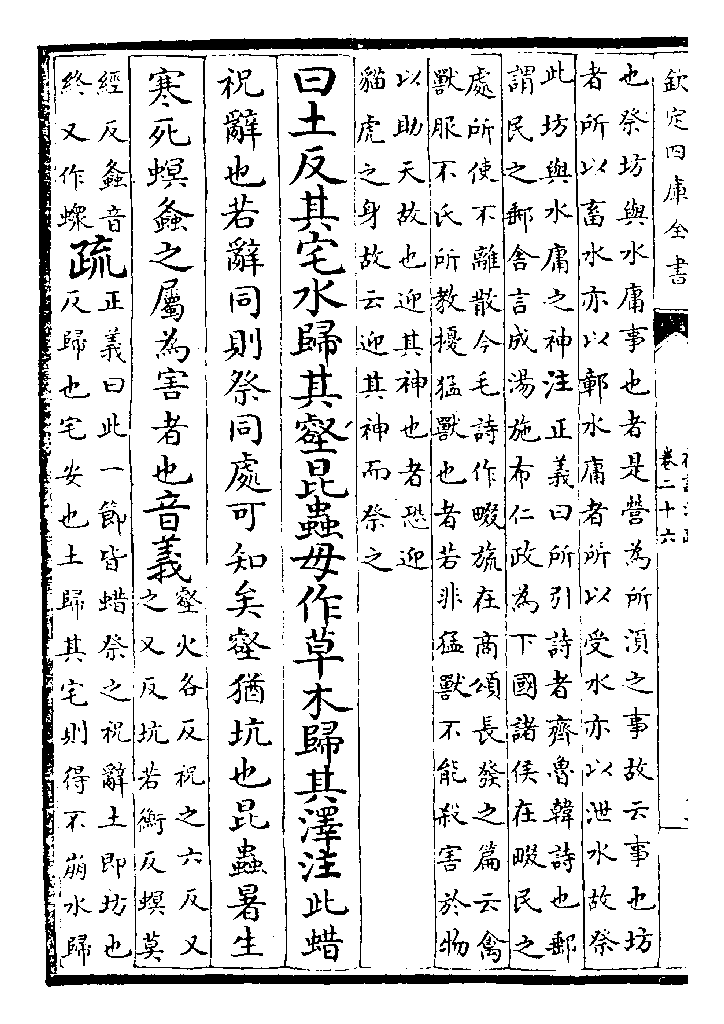 欽定四庫全書
卷二十六
也祭坊與水庸事也者是營為所湏之事故云事也坊
者所以畜水亦以鄣水庸者所以受水亦以泄水故祭
此坊與水庸之神注正義曰所引詩者齊魯韓詩也郵
謂民之郵舍言成湯施布仁政為下國諸侯在畷民之
處所使不離散今毛詩作畷旒在商頌長發之篇云禽
獸服不氏所教擾猛獸也者若非猛獸不能殺害於物
以助天故也迎其神也者恐迎
貓虎之身故云迎其神而祭之
曰土反其宅水歸其壑昆蟲毋作草木歸其澤注此蜡
祝辭也若辭同則祭同處可知矣壑猶坑也昆蟲暑生
寒死螟螽之屬為害者也音義壑火各反祝之六反又
之又反坑若衡反螟莫
經反螽音
終又作螺疏正義曰此一節皆蜡祭之祝辭土即坊也
反歸也宅安也土歸其宅則得不崩水歸